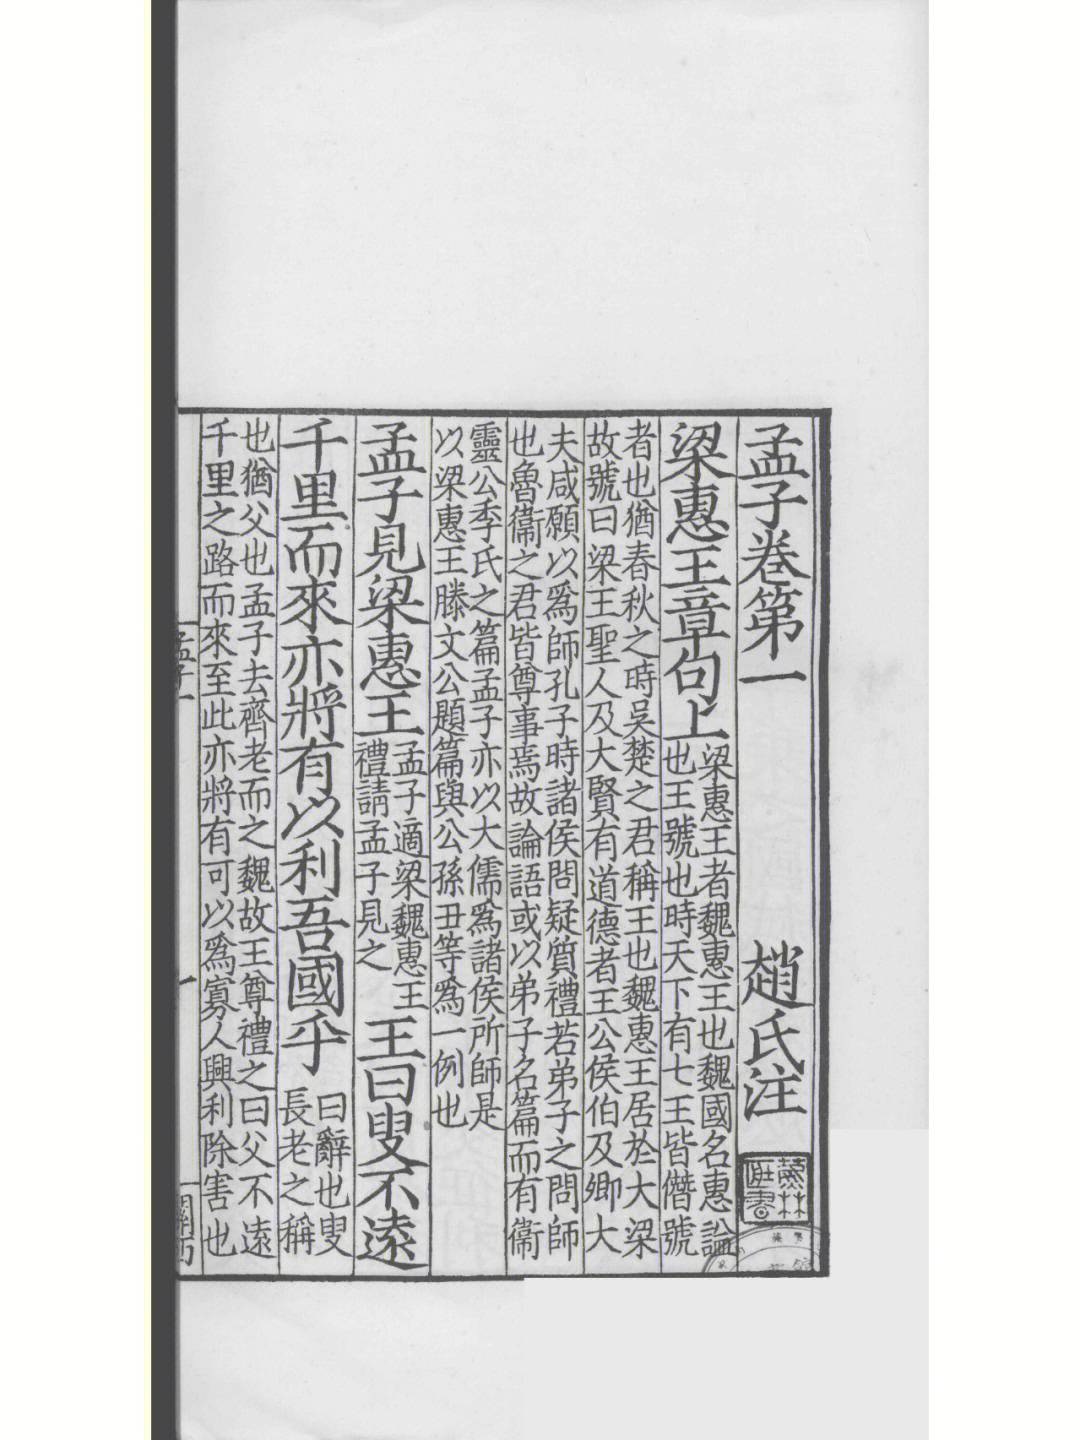 孟子卷第一 趙氏注
梁惠王章句上
梁惠王者魏惠王也魏國名惠謚
也王號也時天下有七王皆僭號
者也猶春秋之時吳楚之君稱王也魏惠王居於大梁
故號曰梁王聖人及大賢有道德者王公侯伯及卿大
夫咸願以爲師孔子時諸侯問疑質禮若弟子之問師
也魯衞之君皆尊事焉故論語或以弟子名篇而有衞
靈公季氏之篇孟子亦以大儒爲諸侯所師是
以梁惠王滕文公題篇與公孫丑等爲一例也
孟子見梁惠王
孟子適梁魏惠王
禮請孟子見之
王曰叟不遠
千里而來亦將有以利吾國乎
曰辭也叟
長老之稱
也猶父也孟子去齊老而之魏故王尊禮之曰父不遠
千里之路而來至此亦將有可以爲寡人興利除害也
孟子一
一